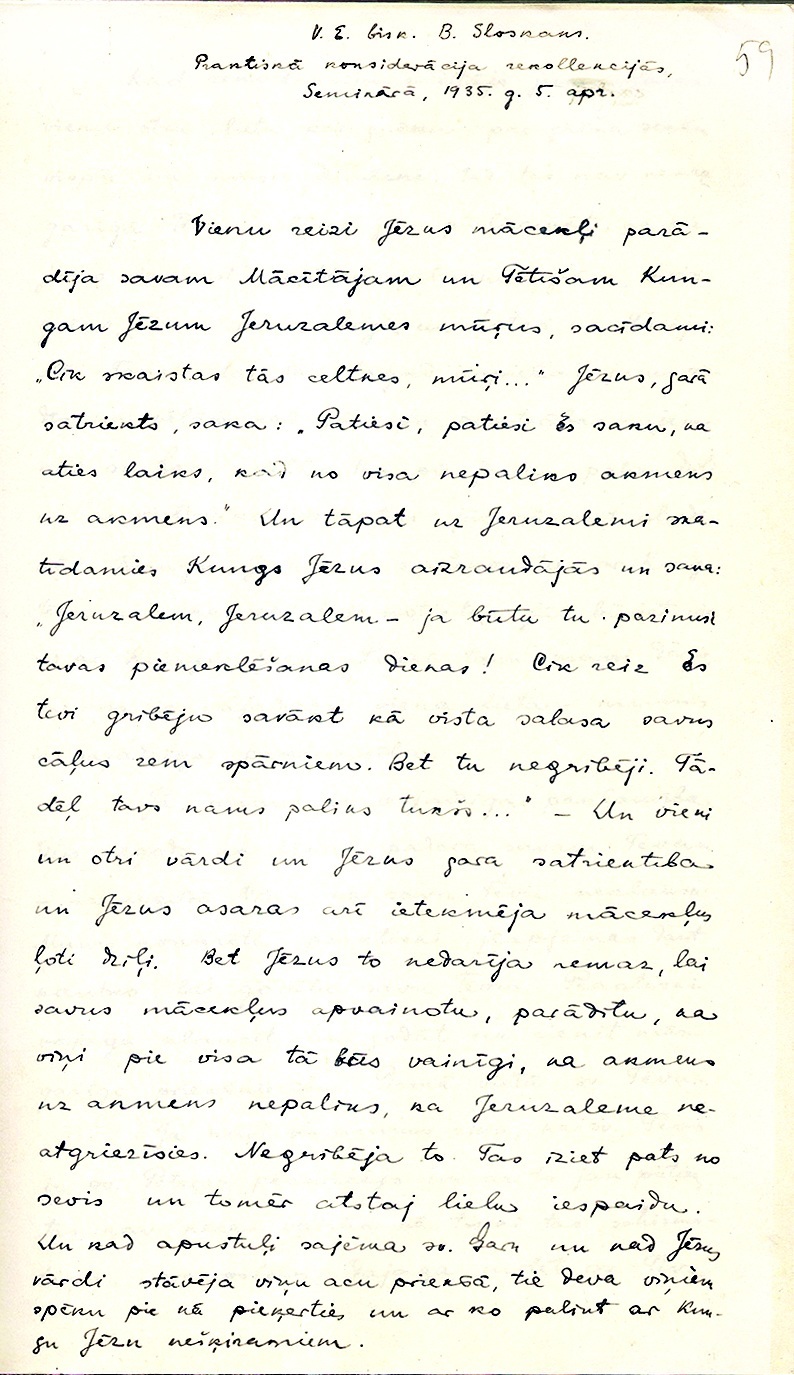 V. E. bisk. B. Sloskans.
Praktiskā konsiderācija rekollekcijās,
Seminārā, 1935. g. 5. apr.
59
Vienu reizi Jēzus mācekļi parā-
dīja savam Mācītājam un Tētišam Kun-
gam Jēzum Jeruzalemes mūŗus, sacīdami:
„Cik skaistas tās celtnes, mūŗi..." Jēzus, garā
satriekts, saka: „Patiesi, patiesi Es saku, ka
aties laiks, kad no visa nepaliks akmens
uz akmens." Un tāpat uz Jeruzalemi ska-
tīdamies Kungs Jēzus aizraudājās un saka:
„Jeruzalem, Jeruzalem – ja būtu tu pazinusi
tavas piemeklēšanas dienas! Cik reiz Es
tevi gribēju savākt kā vista salasa savus
cāļus zem spārniem. Bet tu negribēji. Tā-
dēļ tavs nams paliks tukšs..." – Un vieni
un otri vārdi un Jēzus gara satriektība
un Jēzus asaras arī ietekmēja mācekļus
ļoti dziļi. Bet Jēzus to nedarīja nemaz, lai
savus mācekļus apvainotu, parādītu, ka
viņi pie visa tā būs vainīgi, ka akmens
uz akmens nepaliks, ka Jeruzaleme ne-
atgriezīsies. Negribēja to. Tas iziet pats no
sevis un tomēr atstāj lielu iespaidu.
Un kad apustuļi saņēma sv. Garu un kad Jēzus
vārdi stāvēja viņu acu priekšā, tie deva viņiem
spēku pie kā pieķerties un ar ko palikt ar Kun-
gu Jēzu nešķiramiem.